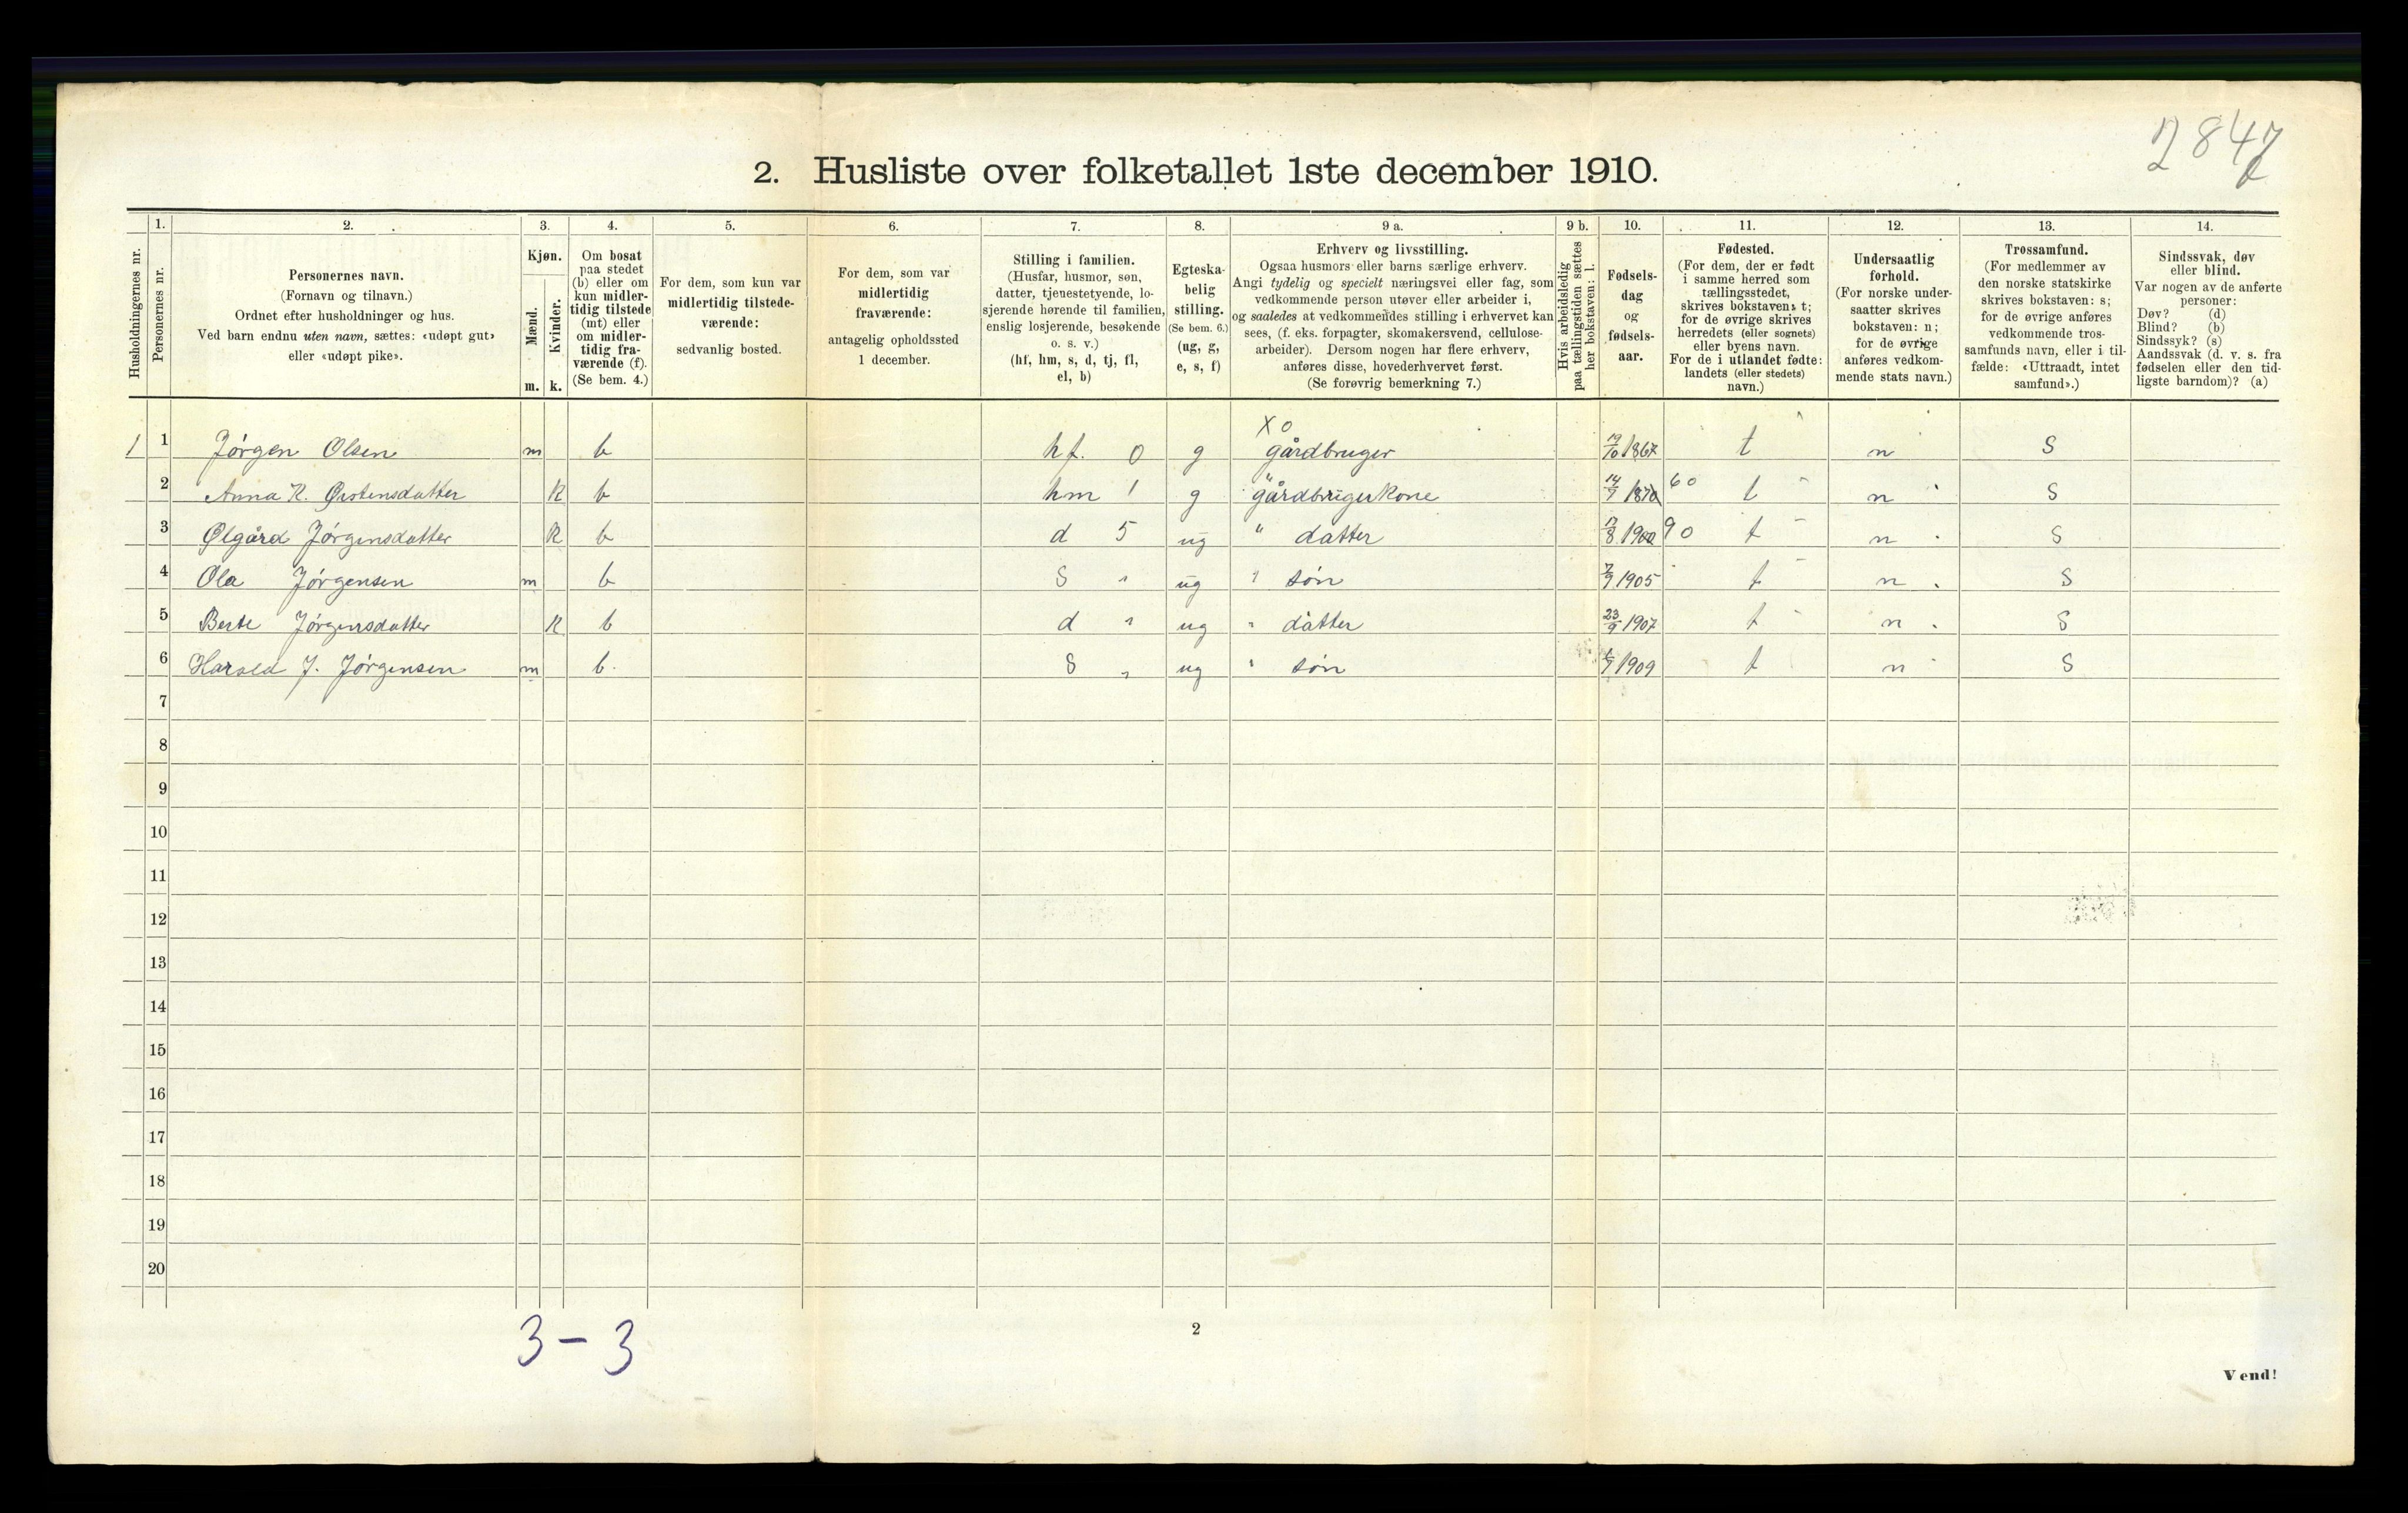 2847
2. Husliste over folketallet 1ste december 1910.
Husholdningernes nr.
1.
Personernes nr.
2.
Personernes navn.
(Fornavn og tilnavn.)
Ordnet efter husholdninger og hus.
Ved barn endnu uten navn, sættes: «udøpt gut»
eller «udøpt pike».
3.
Kjøn.
Mænd.
Kvinder.
m. k.
4.
Om bosat
paa stedet
(b) eller om
kun midler-
tidig tilstede
(mt) eller
om midler-
tidig fra-
værende (f).
(Se bem. 4.)
5.
For dem, som kun var
midlertidig tilstede-
værende:
sedvanlig bosted.
6.
For dem, som var
midlertidig
fraværende:
antagelig opholdssted
1 december.
7.
Stilling i familien.
(Husfar, husmor, søn,
datter, tjenestetyende, lo-
sjerende hørende til familien,
enslig losjerende, besøkende
o. s. v.)
(hf, hm, s, d, tj, fl,
el, b)
8.
Egteska-
belig
stilling.
(Se bem. 6.)
(ug, g,
e, s, f)
9 a.
Erhverv og livsstilling.
Ogsaa husmors eller barns særlige erhverv.
Angi tydelig og specielt næringsvei eller fag, som
vedkommende person utøver eller arbeider i,
og saaledes at vedkommendes stilling i erhvervet kan
sees, (f. eks. forpagter, skomakersvend, cellulose-
arbeider). Dersom nogen har flere erhverv,
anføres disse, hovederhvervet først.
(Se forøvrig bemerkning 7.)
9 b.
Hvis arbeidsledig
paa tællingstiden sættes
her bokstaven: l.
10.
Fødsels-
dag
og
fødsels-
aar.
11.
Fødested.
(For dem, der er født
i samme herred som
tællingsstedet,
skrives bokstaven: t;
for de øvrige skrives
herredets (eller sognets)
eller byens navn.
For de i utlandet fødte:
landets (eller stedets)
navn.)
12.
Undersaatlig
forhold.
(For norske under-
saatter skrives
bokstaven: n;
for de øvrige
anføres vedkom-
mende stats navn.)
13.
Trossamfund.
(For medlemmer av
den norske statskirke
skrives bokstaven: s;
for de øvrige anføres
vedkommende tros-
samfunds navn, eller i til-
fælde: «Uttraadt, intet
samfund».)
14.
Sindssvak, døv
eller blind.
Var nogen av de anførte
personer:
Døv? (d)
Blind? (b)
Sindssyk? (s)
Aandssvak (d. v. s. fra
fødselen eller den tid-
ligste barndom)? (a)
X 0
1 1 Jørgen Olsen m b hf. 0 g gårdbruger 19/10 1867 t n S
2 Anna K. Østensdatter K b hm 1 g gårdbrugerkone 14/7 1870 60 t n S
3 Ølgård Jørgensdatter K b d 5 ug " datter 1900 90 t n S
4 Ola Jørgensen m b S " ug " søn 7/9 1905 t n S
5 Berte Jørgensdatter K b d " ug " datter 23/9 1907 t n S
6 Harald J. Jørgensen m b S " ug " søn 1909 t n S
7
8
9
10
11
12
13
14
15
16
17
18
19
20
3 – 3
2
Vend!